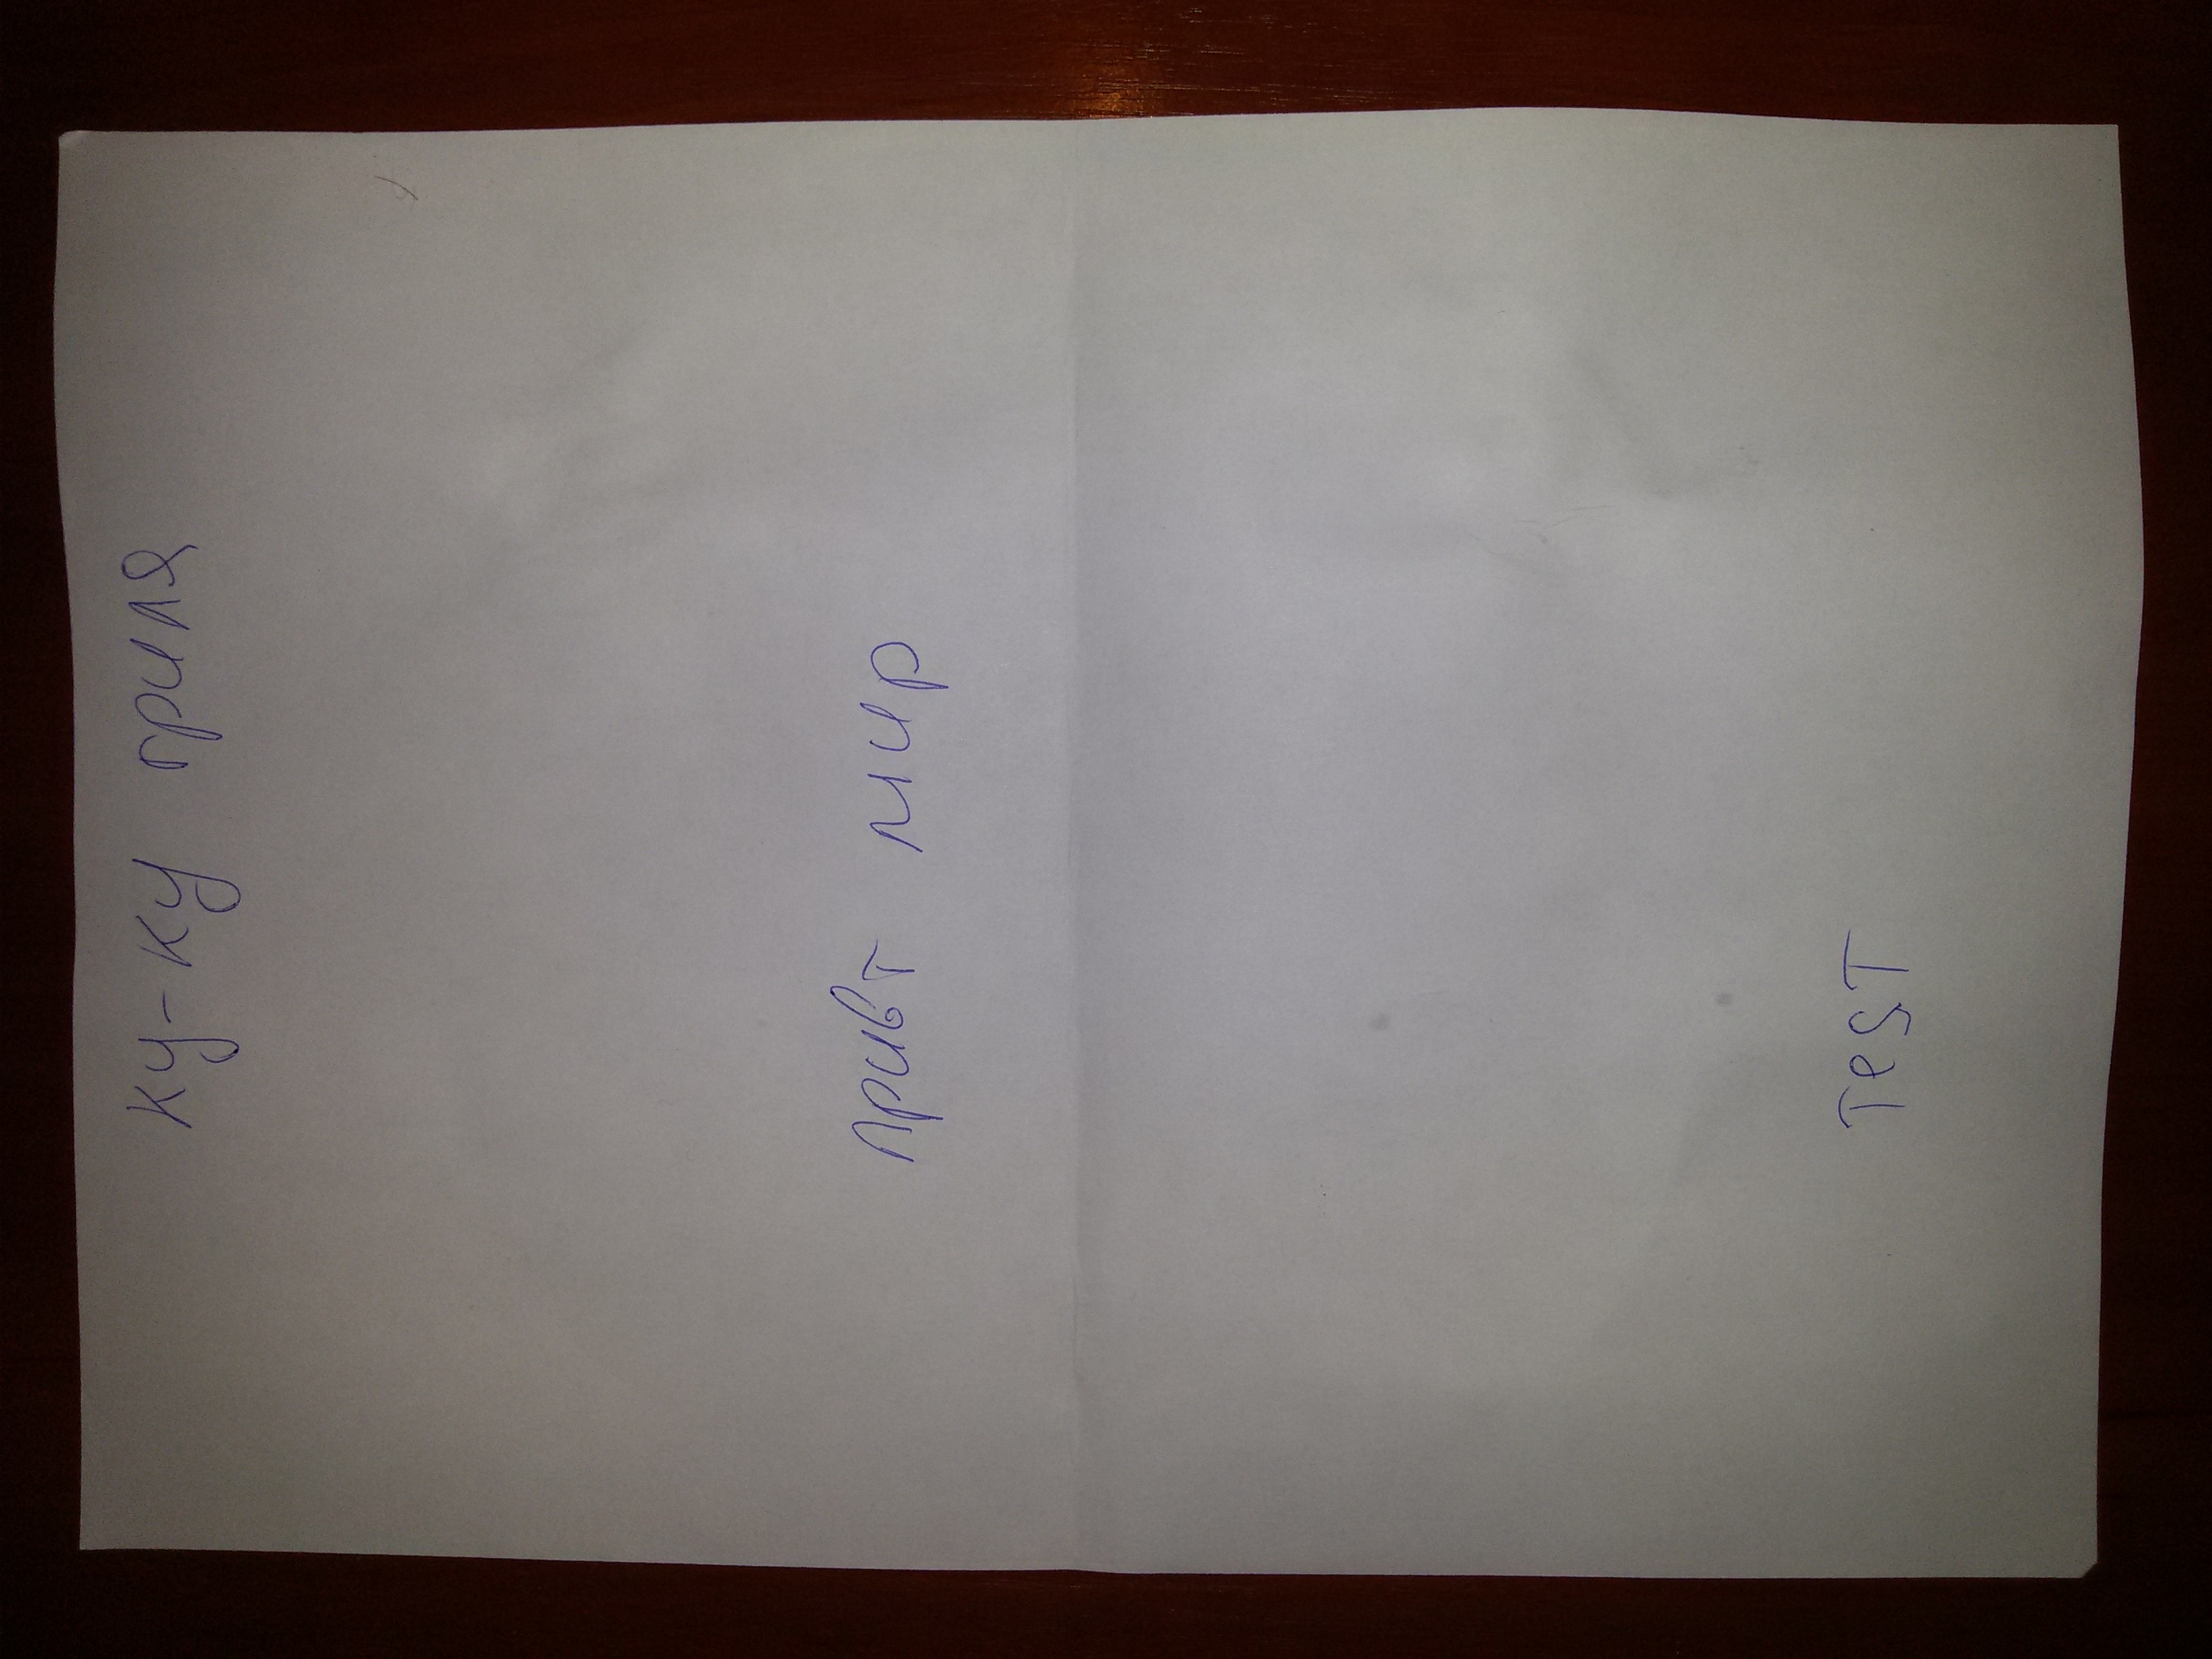 ку-ку гриля
привт мир
TeST